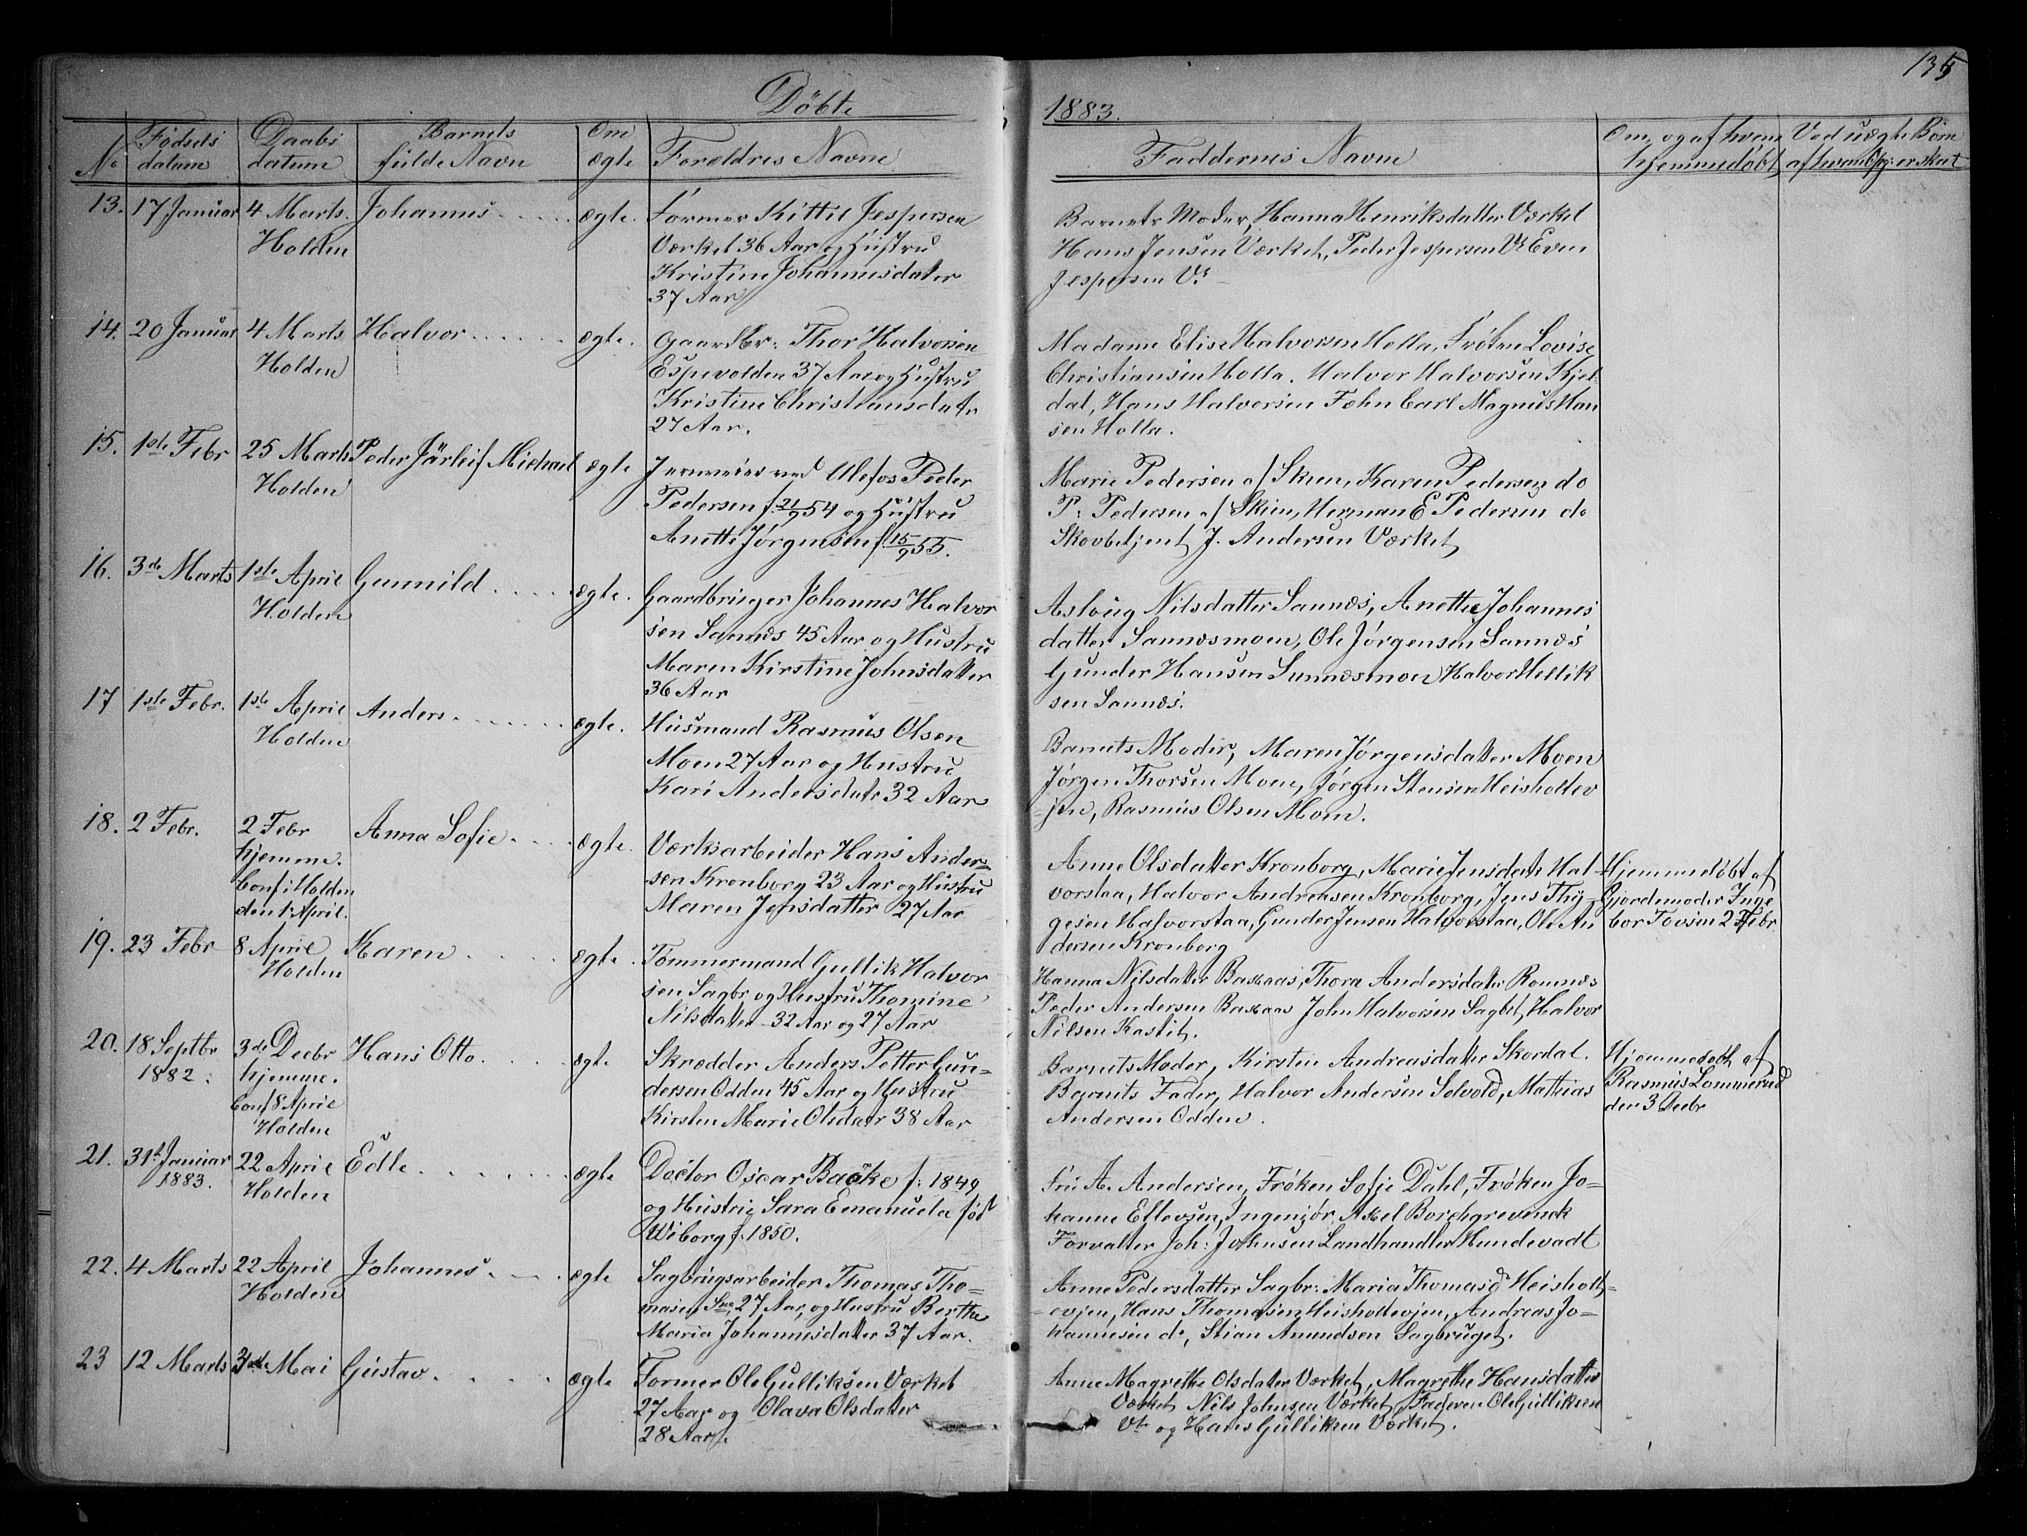 135
Döbte
1883.
No
Födsels datum
Daabs datum
Barnets fulde Navn
Om ægte
Forældres Navne
Faddernes Navne
Om, og af hvem hjemmedöbt,
Ved uægte Börn af hvem Opg: er skeet
13. 17 Januar 4 Marts Johannes ægte. Former Kittil Jespersen
Holden Værket 36 Aar og Hustru
Kristine Johannesdatter
37 Aar
Barnets Moder, Hanna Henriksdatter Værket
Hans Jensen Værket, Peder Jespersen Vt Even
Jespersen Vt
14. 20 Januar 4 Marts Halvor ægte. Gaardbr: Thor Halvorsen
Holden Espevolden 37 Aar og Hustru
Kristine Christiansdatr
27 Aar.
Madame Elise Halvorsen Holla, Fröken Lovise
Christiansen Holla. Halvor Halvorsen Kjel-
dal, Hans Halvorsen Fehn Carl Magnus Han
sen Holla.
15. 1ste Febr 25 Marts Peder Järleif Michael ægte
Holden Ulefos Peder
Pedersen f. 21/9 54 og Hustru
Anette Jörgensen f. 15/9 55.
Marie Pedersen af Skien, Karen Pedersen do
P. Pedersen af Skien, Herman E Pedersen do
Skovbetjent J. Andersen Værket
16. 3de Marts 1ste April Gunnild ægte. Gaardbruger Johannes Halvor
Holden sen Sannes 45 Aar og Hustru
Maren Kirstine Johnsdatter
36 Aar
Aslaug Nilsdatter Sannes, Anette Johannes
datter Sannesmoen, Ole Jörgensen Sannes
Gunder Hansen Sannesmoen Halvor Kittik
sen Sannes.
17 1ste Febr. 1ste April Anders ægte. Husmand Rasmus Olsen
Holden Moen 27 Aar og Hustru
Kari Andersdatr 32 Aar
Barnets Moder, Maren Jörgensdatter Moen
Jörgen Thorsen Moen, Jörgen Stensen Heisholtev
jen, Rasmus Olsen Moen.
18. 2 Febr. 2 Febr Anna Sofie ægte. Værksarbeider Hans Ander-
hjemme. sen Kronborg 23 Aar og Hustru
Conf: Holden Maren Jensdatter 27 Aar
den 1 April.
Anne Olsdatter Kronborg, Marie Jensdatr Hal-
vorstaa, Halvor Andreasen Kronborg, Jens Thy-
gesen Halvorstaa, Gunder Jensen Halvorstaa, Ole An
dersen Kronborg
Hjemmedöbt af
Gjordemoder Inge
bor Tovsen 2 Febr
19. 23 Febr 8 April Karen ægte. Tömmermand Gullik Halvor
Holden sen Sagbr og Hustru Thomine
Nilsdatter 32 Aar og 27 Aar
Hanna Nilsdatter Baskaas, Thora Andersdatter Romnes
Peder Andersen Baskaas John Halvorsen Sagbr, Halvor
Nilsen Kastit.
20. 18 Septbr 3de Decbr Hans Otto. ægte. Skrædder Anders Petter Gun-
1882. hjemme. dersen Odden 45 Aar og Hustru
Conf 8 April Kirsten Marie Olsdatr 38 Aar
Holden
Barnets Moder, Kirsten Andreasdatter Skordal.
Barnets Fader, Halvor Andersen Solvold, Mathias
Andersen Odden.
Hjemmedöbt af
Rasmus Lommerud
der 3 Decbr
21. 31te Januar 22 April Edle ægte Doctor Oscar Backe f: 1849
1883. Holden og Hustru Sara Emanuela född
Wiborg f. 1850.
Fru A. Andersen, Fröken Sofie Dahl, Fröken Jo-
hanne Ellevsen, Ingeniör Axel Borchgrevenck
Forvalter Joh: Johnsen Landhandler Hundevadt
22. 4 Marts 22 April Johannes ægte Sagbrugsarbeider Thomas Tho-
Holden masen 27 Aar, og Hustru Berthe
Maria Johannesdatter 37 Aar.
Anne Pedersdatter Sagbr: Maria Thomasd Heisholt-
evjen, Hans Thomasen Heisholtevjen, Andreas Jo-
hannesen do, Stian Amundsen Sagbruget.
23 12 Marts 3die Mai Gustav ægte Former Ole Gulliksen Værket
27 Aar og Olava Olsdatter
28 Aar.
Anne Magrethe Olsdatter Værket, Magrethe Hansdatter
Værket Nils Johnsen Værket, Faderen Ole Gulliksen
Vt og Hans Gulliksen Værket.